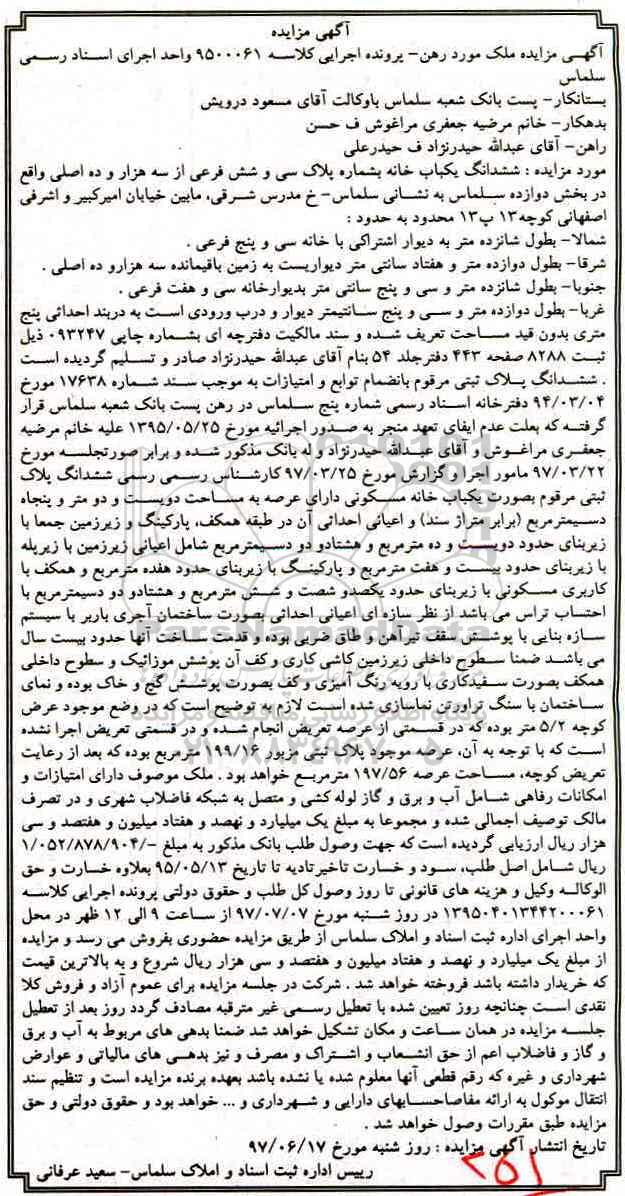 آگهی مزایده
آگهی مزایده ملک مورد رهن- پرونده اجرایی کلاسه ۹۵۰۰۰۶۱ واحد اجرای اسناد رسمی
سلماس
بستانکار- پست بانک شعبه سلماس باوکالت آقای مسعود درویش
بدهکار- خانم مرضیه جعفری مراغوش ف حسن
راهن- آقای عبدالله حیدرنژاد ف حیدرعلی
مورد مزایده : ششدانگ یکباب خانه بشماره پلاک سی و شش فرعی از سه هزار و ده اصلی واقع
در بخش دوازده سلماس به نشانی سلماس- خ مدرس شرقی، مابین خیابان امیرکبیر و اشرفی
اصفهانی کوچه۱۳ پ۱۳ محدود به حدود :
شمالا- بطول شانزده متر به دیوار اشتراکی با خانه سی و پنج فرعی .
شرقا- بطول دوازده متر و هفتاد سانتی متر دیواریست به زمین باقیمانده سه هزارو ده اصلی .
جنوبا- بطول شانزده متر و سی و پنج سانتی متر بدیوارخانه سی و هفت فرعی .
غربا- بطول دوازده متر و سی و پنج سانتیمتر دیوار و درب ورودی است به دربند احداثی پنج
متری بدون قید مساحت تعریف شده و سند مالکیت دفترچه ای بشماره چاپی ۰۹۳۲۴۷ ذیل
ثبت ۸۲۸۸ صفحه ۴۴۳ دفترجلد ۵۴ بنام آقای عبدالله حیدرنژاد صادر و تسلیم گردیده است
. ششدانگ پلاک ثبتی مرقوم بانضمام توابع و امتیازات به موجب سند شماره ۱۷۶۳۸ مورخ
۹۴/۰۳/۰۴ دفترخانه اسناد رسمی شماره پنج سلماس در رهن پست بانک شعبه سلماس قرار
گرفته که بعلت عدم ایفای تعهد منجر به صدور اجرائیه مورخ ۱۳۹۵/۰۵/۲۵ علیه خانم مرضیه
جعفری مراغوش و آقای عبدالله حیدرنژاد و له بانک مذکور شده و برابر صورتجلسه مورخ
۹۷/۰۳/۲۲ مامور اجرا و گزارش مورخ ۹۷/۰۳/۲۵ کارشناس رسمی رسمی ششدانگ پلاک
ثبتی مرقوم بصورت یکباب خانه مسکونی دارای عرصه به مساحت دویست و دو متر و پنجاه
دسیمترمربع (برابر متراژ سند) و اعیانی احداثی آن در طبقه همکف، پارکینگ و زیرزمین جمعا با
زیربنای حدود دویست و ده مترمربع و هشتادو دو دسیمترمربع شامل اعیانی زیرزمین با زیرپله
با زیربنای حدود بیست و هفت مترمربع و پارکینگ با زیربنای حدود هفده مترمربع و همکف با
کاربری مسکونی با زیربنای حدود یکصدو شصت و شش مترمربع و هشتادو دو دسیمترمربع با
احتساب تراس می باشد از نظر سازه ای اعیانی احداثی بصورت ساختمان آجری باربر با سیستم
سازه بنایی با پوشش سقف تیرآهن و طاق ضربی بوده و قدمت ساخت آنها حدود بیست سال
می باشد ضمنا سطوح داخلی زیرزمین کاشی کاری و کف آن پوشش موزائیک و سطوح داخلی
همکف بصورت سفیدکاری با رویه رنگ آمیزی و کف بصورت پوشش گچ و خاک بوده و نمای
ساختمان با سنگ تراورتن نماسازی شده است لازم به توضیح است که در وضع موجود عرض
کوچه ۵/۲ متر بوده که در قسمتی از عرصه تعریض انجام شده و در قسمتی تعریض اجرا نشده
است که با توجه به آن، عرصه موجود پلاک ثبتی مزبور ۱۹۹/۱۶ مترمربع بوده که بعد از رعایت
تعریض کوچه، مساحت عرصه ۱۹۷/۵۶ مترمربع خواهد بود . ملک موصوف دارای امتیازات و
امکانات رفاهی شامل آب و برق و گاز لوله کشی و متصل به شبکه فاضلاب شهری و در تصرف
مالک توصیف اجمالی شده و مجموعا به مبلغ یک میلیارد و نهصد و هفتاد میلیون و هفتصد و سی
هزار ریال ارزیابی گردیده است که جهت وصول طلب بانک مذکور به مبلغ -/۱/۰۵۲/۸۷۸/۹۰۴
ریال شامل اصل طلب، سود و خسارت تاخیرتادیه تا تاریخ ۹۵/۰۵/۱۳ بعلاوه خسارت و حق
الوکاله وکیل و هزینه های قانونی تا روز وصول کل طلب و حقوق دولتی پرونده اجرایی کلاسه
۱۳۹۵۰۴۰۱۳۴۴۲۰۰۰۶۱ در روز شنبه مورخ ۹۷/۰۷/۰۷ از ساعت ۹ الی ۱۲ ظهر در محل
واحد اجرای اداره ثبت اسناد و املاک سلماس از طریق مزایده حضوری بفروش می رسد و مزایده
از مبلغ یک میلیارد و نهصد و هفتاد میلیون و هفتصد و سی هزار ریال شروع و به بالاترین قیمت
که خریدار داشته باشد فروخته خواهد شد . شرکت در جلسه مزایده برای عموم آزاد و فروش کلا
نقدی است چنانچه روز تعیین شده با تعطیل رسمی غیر مترقبه مصادف گردد روز بعد از تعطیل
جلسه مزایده در همان ساعت و مکان تشکیل خواهد شد ضمنا بدهی های مربوط به آب و برق
و گاز و فاضلاب اعم از حق انشعاب و اشتراک و مصرف و نیز بدهی های مالیاتی و عوارض
شهرداری و غیره که رقم قطعی آنها معلوم شده یا نشده باشد بعهده برنده مزایده است و تنظیم سند
انتقال موکول به ارائه مفاصاحسابهای دارایی و شهرداری و ... خواهد بود و حقوق دولتی و حق
مزایده طبق مقررات وصول خواهد شد .
تاریخ انتشار آگهی مزایده : روز شنبه مورخ ۹۷/۰۶/۱۷
رییس اداره ثبت اسناد و املاک سلماس- سعید عرفانی
۲۵۱
ParsNamadData
۰۲۱-۸۸۳۴۹۶۷۰-۵